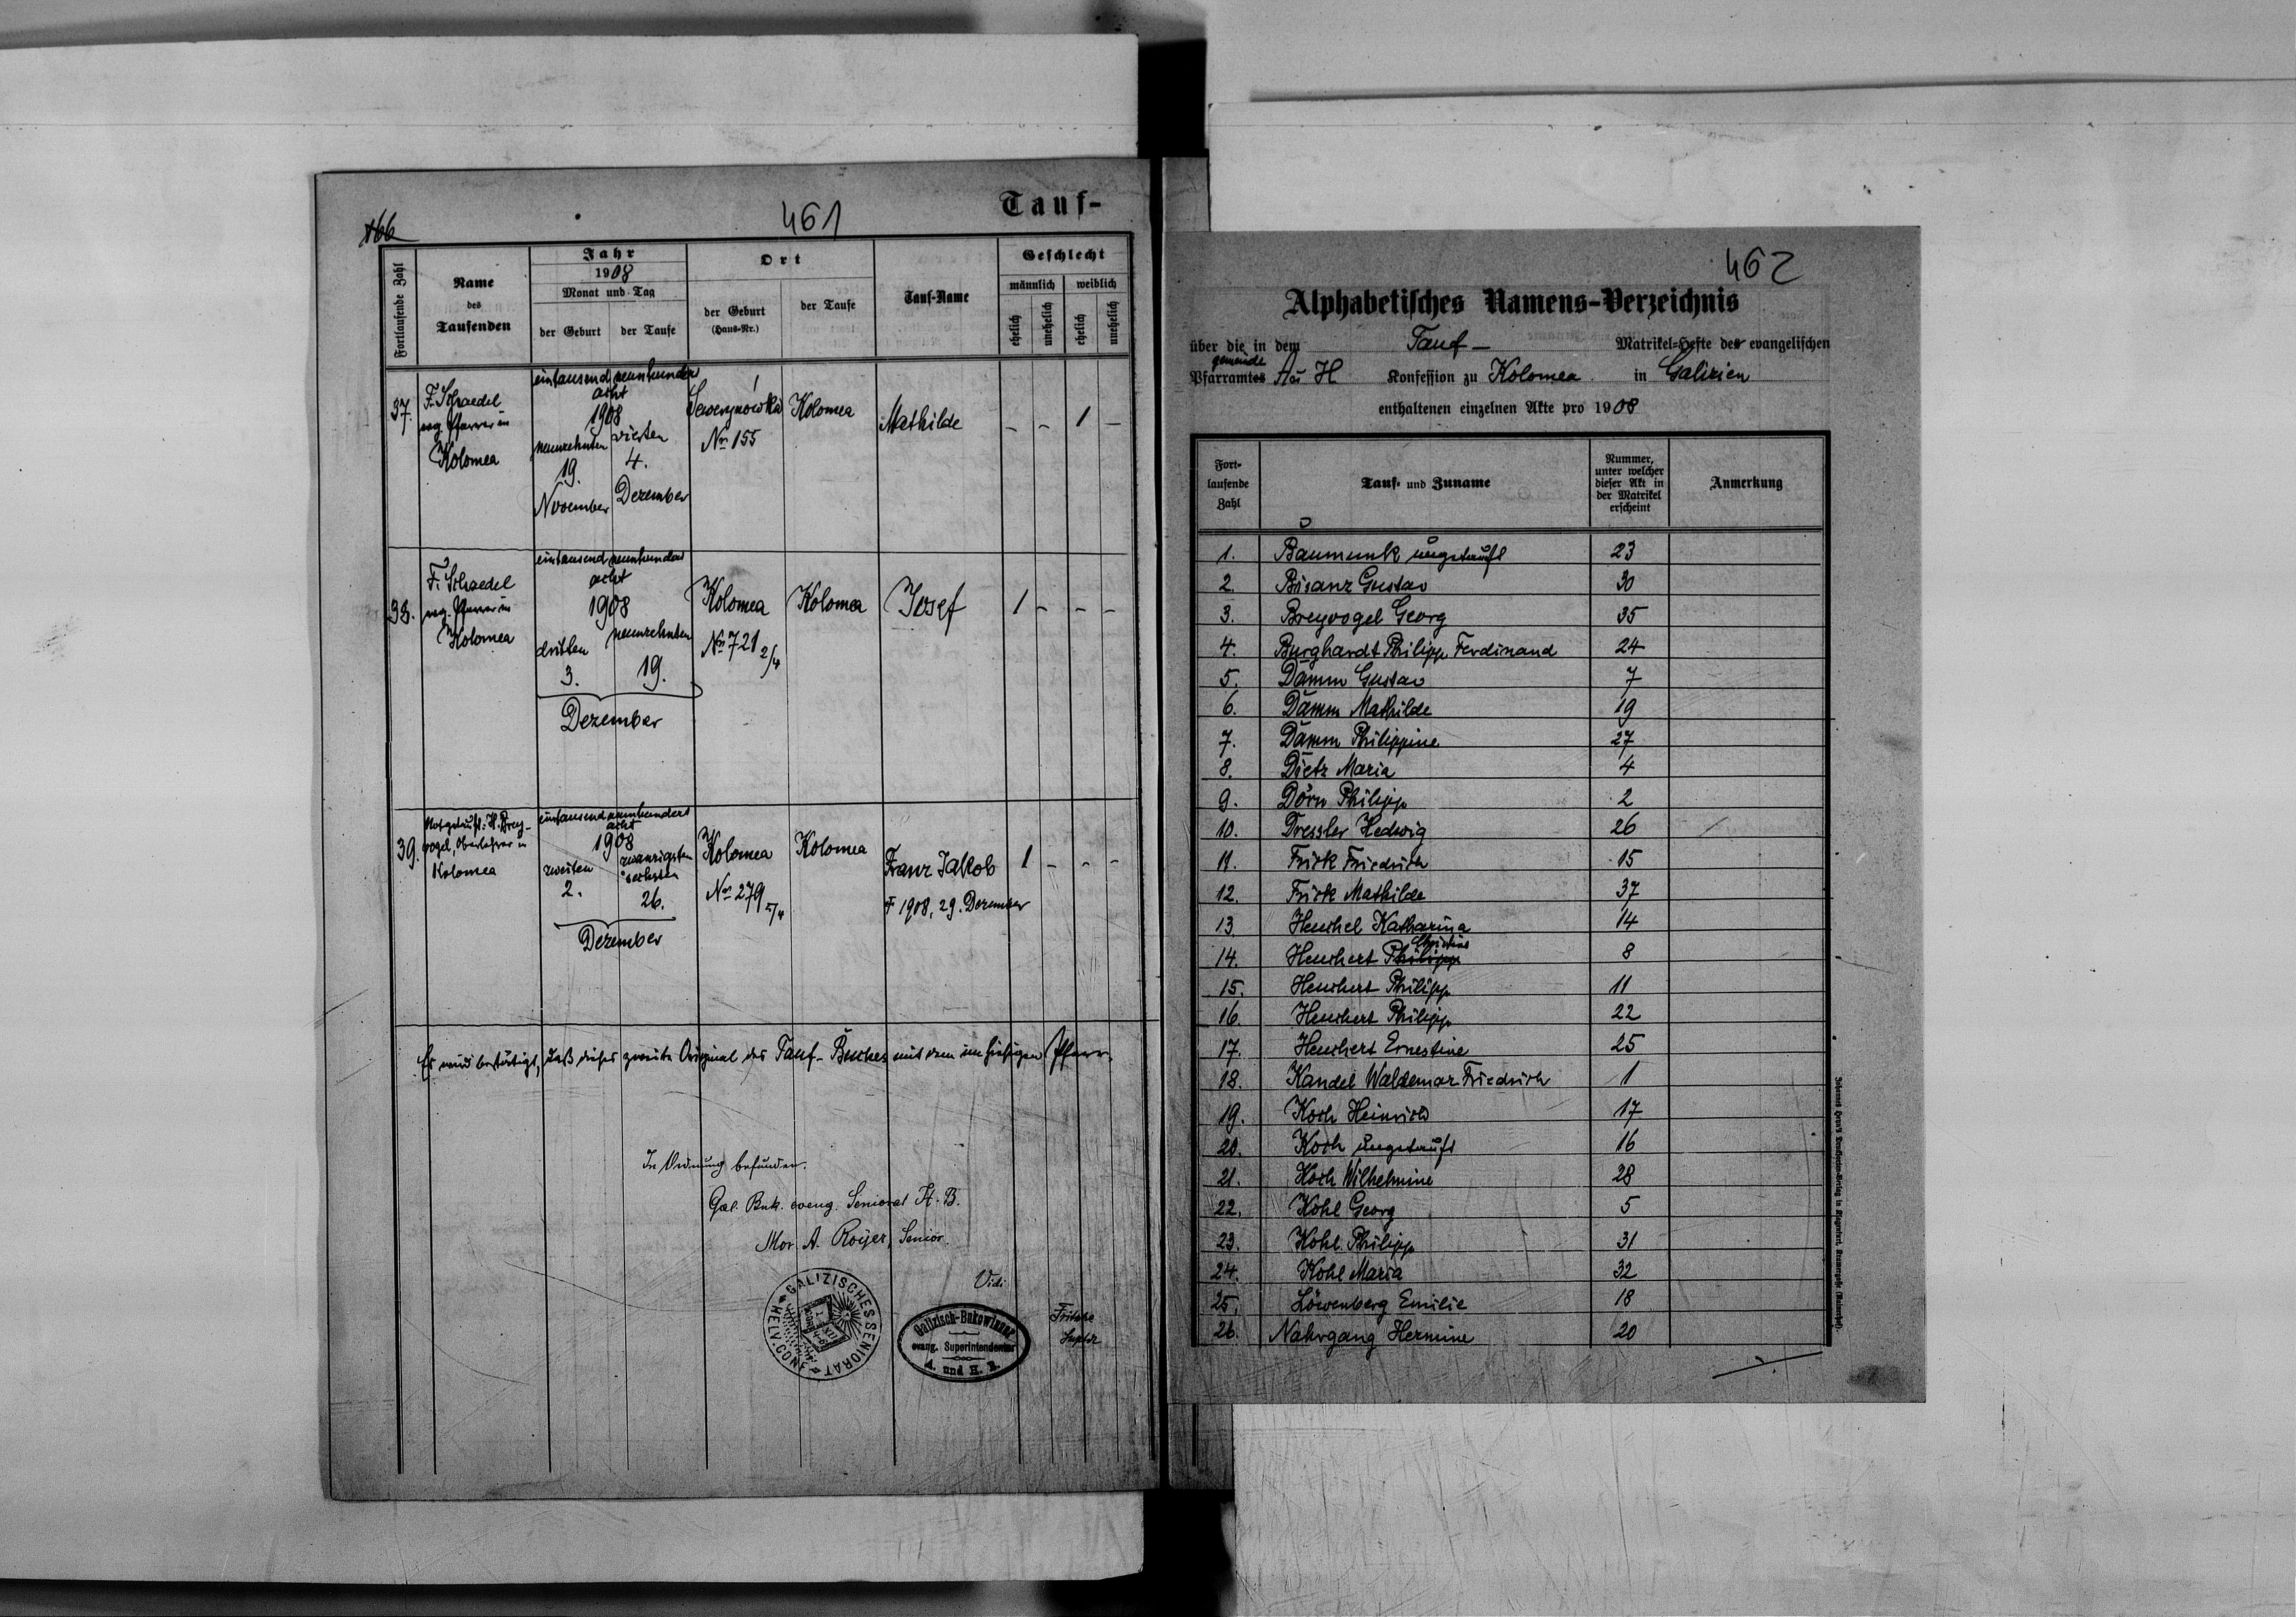 166
461
Tauf-
Fortlaufende Zahl
Name
des
Taufenden
Jahr
1908
Monat und Tag
der Geburt
der Taufe
Ort
der Geburt
(Haus-Nr.)
der Taufe
Tauf-Name
Geschlecht
männlich
weiblich
ehelich
unehelich
ehelich
unehelich
37.
F. Schaedel
evg. Pfarrer in
Kolomea
eintausend neunhundert
acht
1908
neunzehnten
19.
November
vierten
4.
Dezember
Sewerynówka
No 155
Kolomea
Mathilde
- - 1 -
38.
F. Schaedel
evg. Pfarrer in
Kolomea
eintausend neunhundert
acht
1908
dritten
3.
neunzehnten
19.
Dezember
Kolomea
No 721 2/4
Kolomea
Josef
1 - - -
39.
Notgetauft: H. Brey-
vogel, Oberlehrer in
Kolomea
eintausend neunhundert
acht
1908
zweiten
2.
zwanzigsten
sechsten
26.
Dezember
Kolomea
No 279 5/4
Kolomea
Franz Jakob
† 1908, 29. Dezember
1 - - -
Es wird bestätigt, daß dieses zweite Original des Tauf-Buches mit dem im hiesigen Pfarr-
In Ordnung befunden.
Gal. Buk. evang. Seniorat H. B.
Mor A. Royer, Senior.
GALIZISCHES SENIORAT
HELV. CONF.
Vidi
Galizisch-Bukowinaer
evang. Superintendentur
A. und H. B.
Fritsche
Suptdt
462
Alphabetisches Namens-Verzeichnis
über die in dem Tauf- Matrikel-Hefte der evangelischen
gemeinde
Pfarramtes A u H Konfession zu Kolomea in Galizien
enthaltenen einzelnen Akte pro 1908
Fort-
laufende
Zahl
Tauf- und Zuname
Nummer,
unter welcher
dieser Akt in
der Matrikel
erscheint
Anmerkung
1. Baumunk ungetauft 23
2. Bisanz Gustav 30
3. Breyvogel Georg 35
4. Burghardt Philipp Ferdinand 24
5. Damm Gustav 7
6. Damm Mathilde 19
7. Damm Philippine 27
8. Dietz Maria 4
9. Dörn Philipp 2
10. Dressler Hedwig 26
11. Frick Friedrich 15
12. Frick Mathilde 37
13 Henchel Katharina 14
Christine
14. Heuchert Philipp 8
15. Heuchert Philipp 11
16. Heuchert Philipp 22
17. Heuchert Ernestine 25
18. Kandel Waldemar Friedrich 1
19. Koch Heinrich 17
20. Koch ungetauft 16
21. Koch Wilhelmine 28
22. Kohl Georg 5
23. Kohl Philipp 31
24. Kohl Maria 32
25. Löwenberg Emilie 18
26. Nahrgang Hermine 20